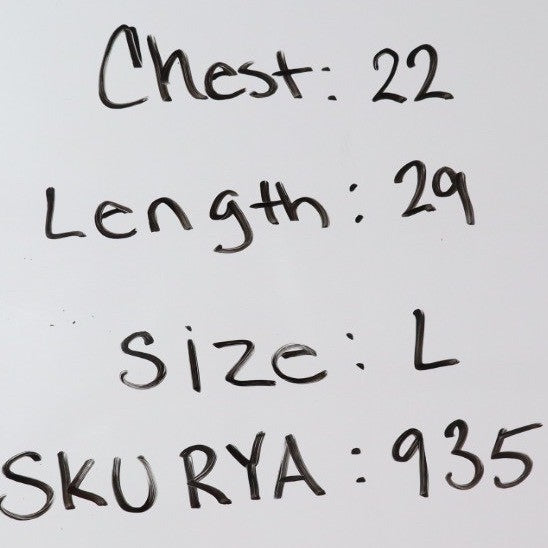 Chest: 22
Length: 29
Size: L
SKU RYA: 935